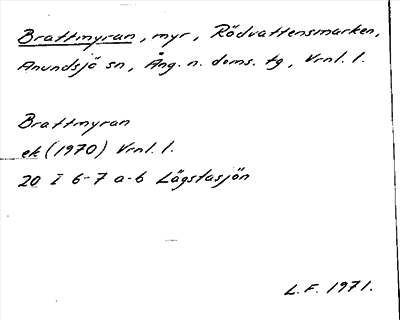 Brattmyran, myr, Rödvattensmarken,
Anundsjö sn, Ång. n. doms. tg, Vrnl. l.
Brattmyran
ek (1970) Vrnl. l.
20 I 6-7 a-b Lägstasjön
L.F. 1971.